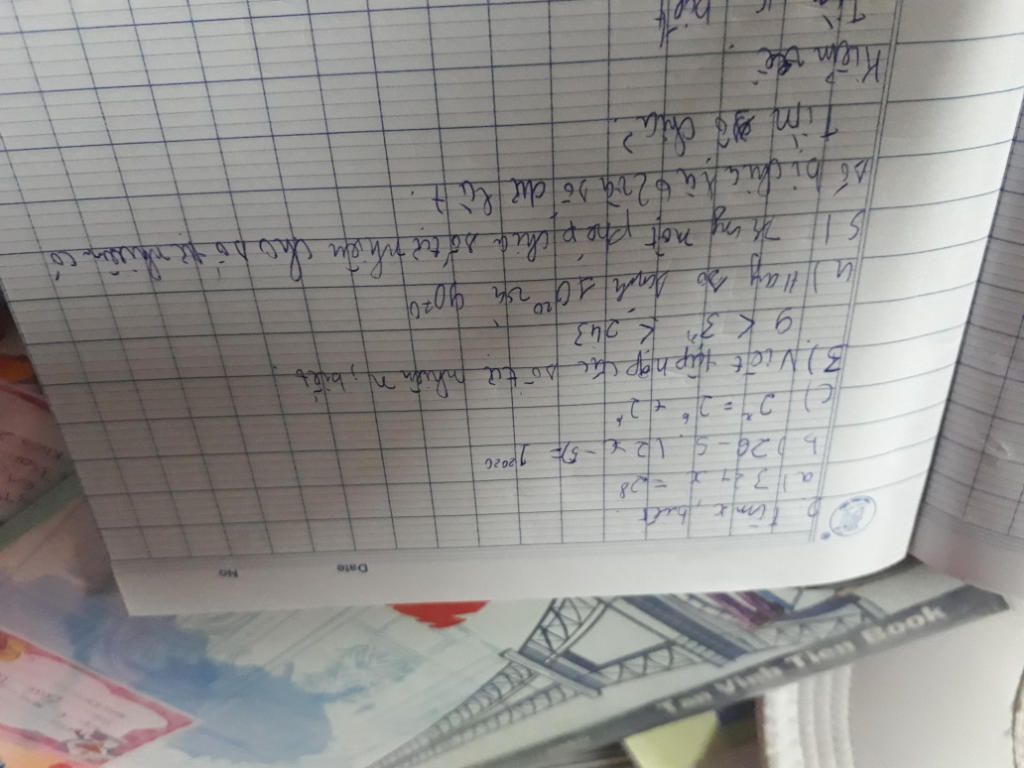 Date No
2) tìm x, biết
a) 3 + x = 28
b) 26 - 5. (2x - 5) = 1²⁰²⁰
c) 2ˣ = 2⁶ × 2⁴
3) Viết tập hợp các số tự nhiên n, biết
9 < 3ⁿ < 243
4) Hãy so sánh 10²⁰ và 90
5) một phép chia số tự nhiên cho số tự nhiên có
số bị chia là 62 và số dư là 7.
Tìm số chia?
Kiểm
biết
Tan Vinh Tien Book